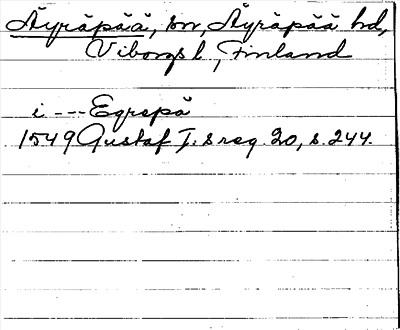 Äyräpää, sn, Äyräpää hd,
Viborgs l, Finland
i --- Egrepä
1549 Gustaf I:s reg. 20, s. 244.